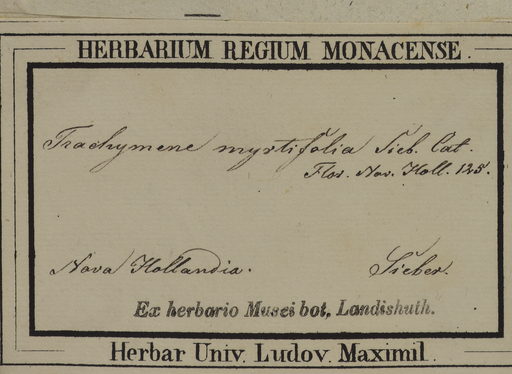 HERBARIUM REGIUM MONACENSE.
Trachymene myrtifolia Sieb. Cat.
Flor. Nov. Holl. 125.
Nova Hollandia. Sieber.
Ex herbario Musei bot. Landishuth.
Herbar Univ. Ludov. Maximil.